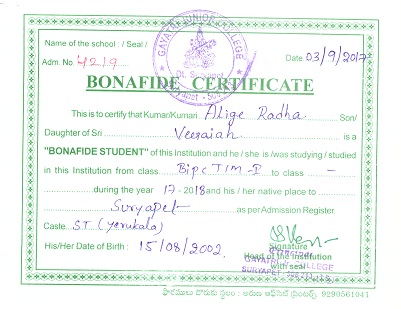 Name of the school : / Seal /
GAYATRI JUNIOR COLLEGE
Adm. No 4219
Date. 03/9/2017
BONAFIDE CERTIFICATE
This is to certify that Kumar/Kumari. Alige Radha Son/
Daughter of Sri Veeraiah is a
"BONAFIDE STUDENT" of this Institution and he / she is /was studying / studied
in this Institution from class Bipc T/M-I to class —
during the year 17-2018 and his / her native place to
Suryapet as per Admission Register.
Caste. ST (Yerukala)
His/Her Date of Birth : 15/08/2002.
Signature
Head of the institution
with seal
PRINCIPAL
GAYATRI Jr. COLLEGE
SURYAPET
ఫారములు దొరుకు స్థలం : అరుణ ఆఫ్‌సెట్ ప్రింటర్స్, 9290561041